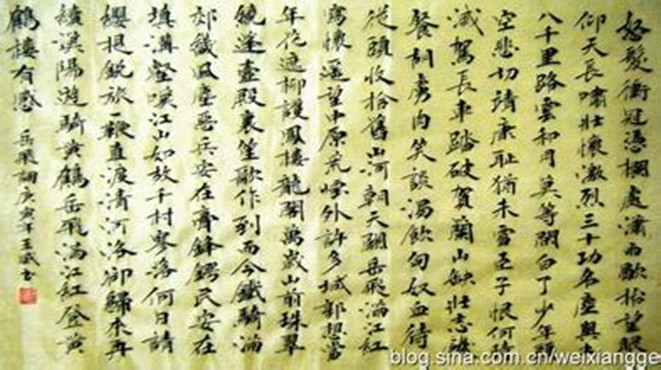 怒髮衝冠憑欄處瀟雨歇抬望眼
仰天長嘯壯懷激烈三十功名塵與土
八千里路雲和月莫等閑白了少年頭
空悲切靖康恥猶未雪臣子恨何時
滅駕長車踏破賀蘭山缺壯志饑
餐胡虜肉笑談渴飲匈奴血待
從頭收拾舊山河朝天闕岳飛滿江紅
寫懷遥望中原荒煙外許多城郭想當
年花遮柳護鳳樓龍閣萬歲山前珠翠
繞蓬壺殿裏笙歌作到而今鐵騎滿
郊畿風塵惡兵安在膏鋒鍔民安在
填溝壑嘆江山如故千村寥落何日請
纓提銳旅一鞭直渡清河洛卻歸來再
續漢陽遊騎黃鶴岳飛滿江紅登黃
鶴樓有感 岳飛詞庚寅年王書
blog.sina.com.cn/weixiangge